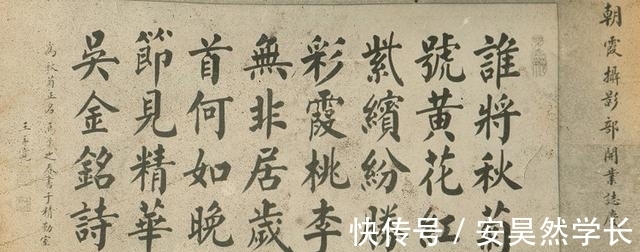 朝霞攝影部開業誌
誰將秋菊
號黃花紅
紫繽紛勝
彩霞桃李
無非居歲
首何如晚
節見精華
吳金銘詩
為秋菊正名 之春書于精勤室
快传号 / 安昊然学长